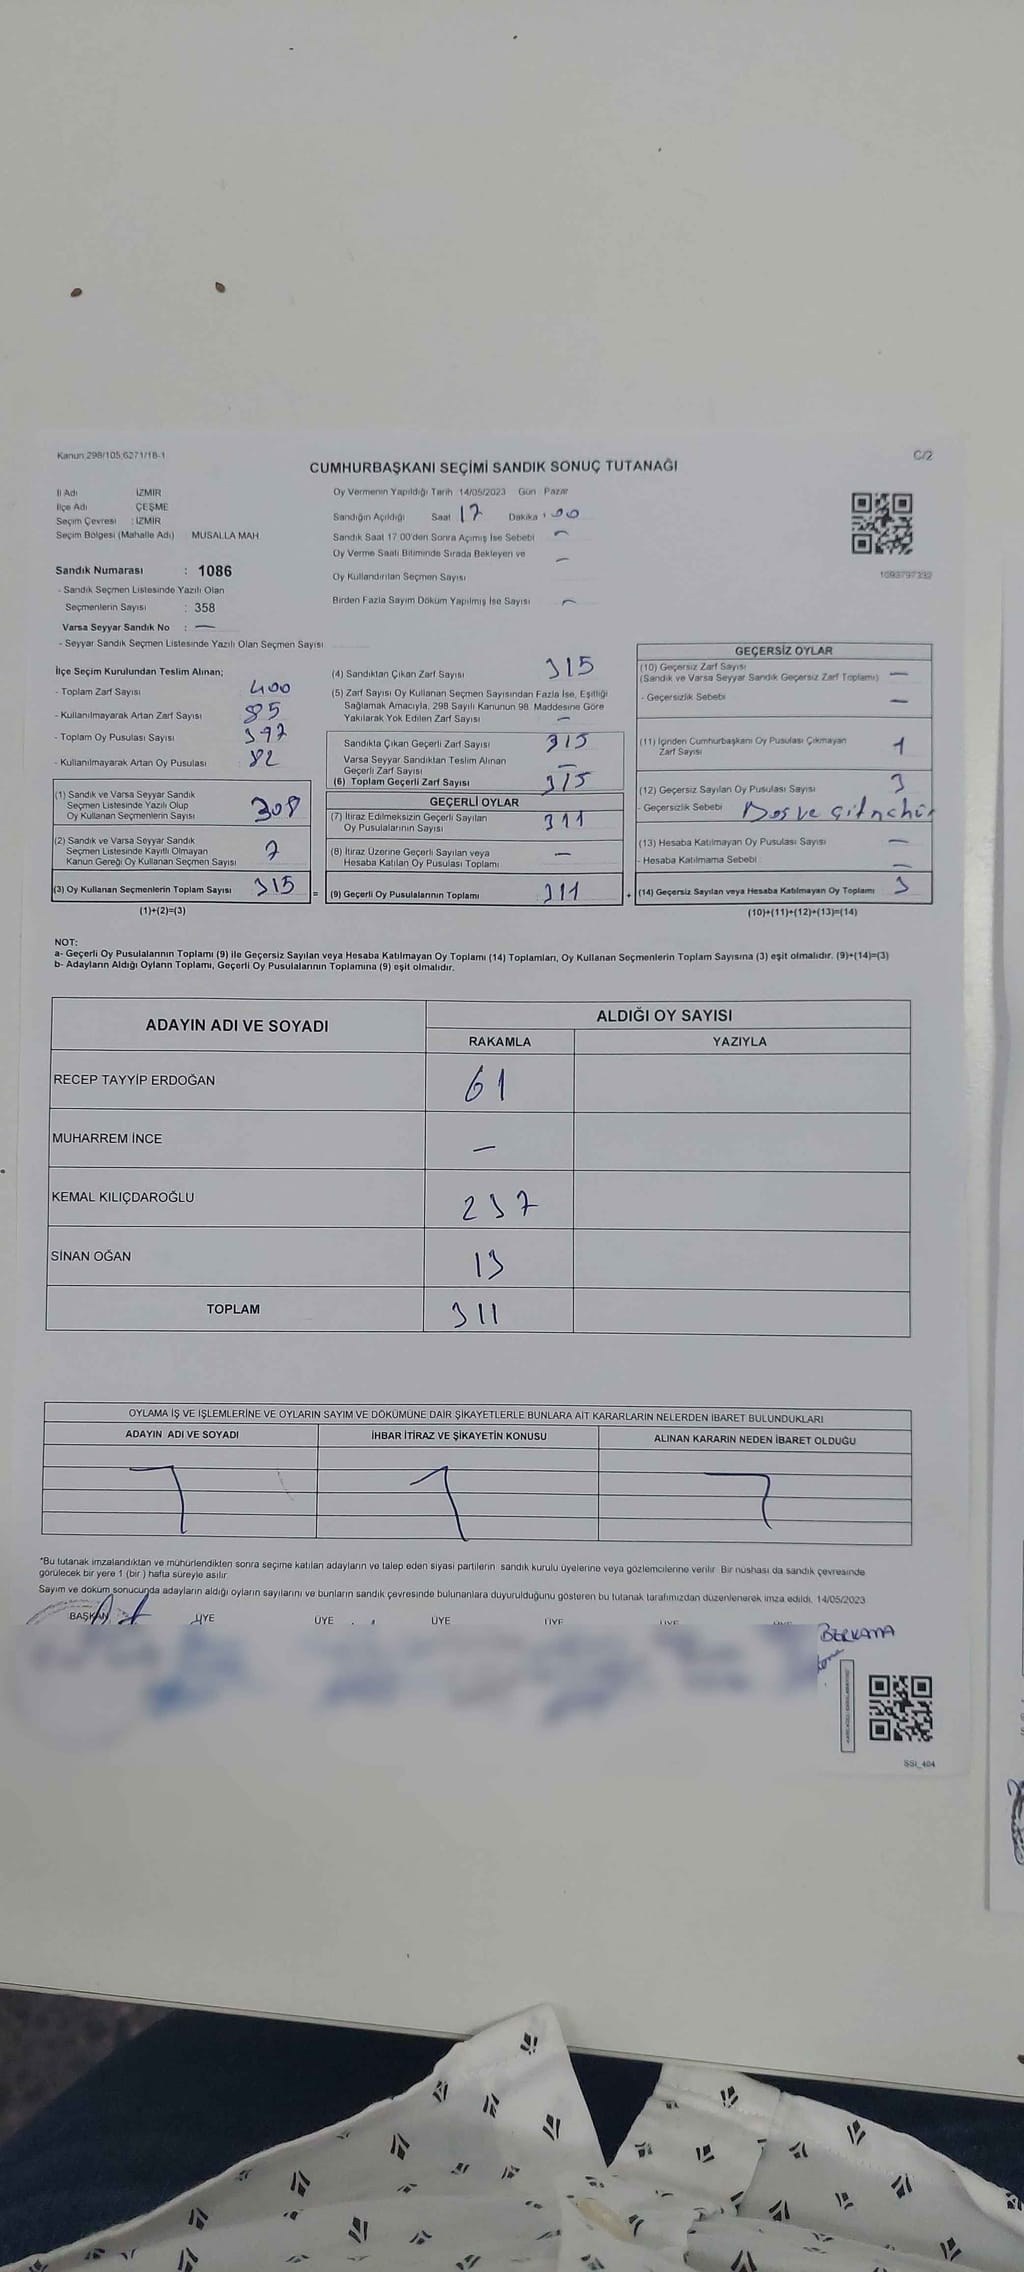 Kanun:298/105;6271/18-1
C/2
CUMHURBAŞKANI SEÇİMİ SANDIK SONUÇ TUTANAĞI
İl Adı : İZMİR
İlçe Adı : ÇEŞME
Seçim Çevresi : İZMİR
Seçim Bölgesi (Mahalle Adı) MUSALLA MAH
Oy Vermenin Yapıldığı Tarih 14/05/2023 Gün Pazar
Sandığın Açıldığı Saat 17 Dakika : 00
Sandık Saat 17.00'den Sonra Açılmış İse Sebebi —
Oy Verme Saati Bitiminde Sırada Bekleyen ve
Oy Kullandırılan Seçmen Sayısı —
Birden Fazla Sayım Döküm Yapılmış İse Sayısı —
1093797332
Sandık Numarası : 1086
- Sandık Seçmen Listesinde Yazılı Olan
Seçmenlerin Sayısı : 358
Varsa Seyyar Sandık No : —
- Seyyar Sandık Seçmen Listesinde Yazılı Olan Seçmen Sayısı
İlçe Seçim Kurulundan Teslim Alınan;
- Toplam Zarf Sayısı : 400
- Kullanılmayarak Artan Zarf Sayısı 85
- Toplam Oy Pusulası Sayısı 397
- Kullanılmayarak Artan Oy Pusulası 82
(1) Sandık ve Varsa Seyyar Sandık
Seçmen Listesinde Yazılı Olup
Oy Kullanan Seçmenlerin Sayısı 308
(2) Sandık ve Varsa Seyyar Sandık
Seçmen Listesinde Kayıtlı Olmayan
Kanun Gereği Oy Kullanan Seçmen Sayısı 7
(3) Oy Kullanan Seçmenlerin Toplam Sayısı 315 =
(1)+(2)=(3)
(4) Sandıktan Çıkan Zarf Sayısı 315
(5) Zarf Sayısı Oy Kullanan Seçmen Sayısından Fazla İse, Eşitliği
Sağlamak Amacıyla, 298 Sayılı Kanunun 98. Maddesine Göre
Yakılarak Yok Edilen Zarf Sayısı —
Sandıkta Çıkan Geçerli Zarf Sayısı 315
Varsa Seyyar Sandıktan Teslim Alınan
Geçerli Zarf Sayısı —
(6) Toplam Geçerli Zarf Sayısı 315
GEÇERLİ OYLAR
(7) İtiraz Edilmeksizin Geçerli Sayılan
Oy Pusulalarının Sayısı 311
(8) İtiraz Üzerine Geçerli Sayılan veya
Hesaba Katılan Oy Pusulası Toplamı —
(9) Geçerli Oy Pusulalarının Toplamı 311 +
GEÇERSİZ OYLAR
(10) Geçersiz Zarf Sayısı
(Sandık ve Varsa Seyyar Sandık Geçersiz Zarf Toplamı) —
- Geçersizlik Sebebi —
(11) İçinden Cumhurbaşkanı Oy Pusulası Çıkmayan
Zarf Sayısı 1
(12) Geçersiz Sayılan Oy Pusulası Sayısı 3
- Geçersizlik Sebebi Boş ve
(13) Hesaba Katılmayan Oy Pusulası Sayısı —
- Hesaba Katılmama Sebebi —
(14) Geçersiz Sayılan veya Hesaba Katılmayan Oy Toplamı 3
(10)+(11)+(12)+(13)=(14)
NOT:
a- Geçerli Oy Pusulalarının Toplamı (9) ile Geçersiz Sayılan veya Hesaba Katılmayan Oy Toplamı (14) Toplamları, Oy Kullanan Seçmenlerin Toplam Sayısına (3) eşit olmalıdır. (9)+(14)=(3)
b- Adayların Aldığı Oyların Toplamı, Geçerli Oy Pusulalarının Toplamına (9) eşit olmalıdır.
ADAYIN ADI VE SOYADI
ALDIĞI OY SAYISI
RAKAMLA YAZIYLA
RECEP TAYYİP ERDOĞAN 61
MUHARREM İNCE —
KEMAL KILIÇDAROĞLU 237
SİNAN OĞAN 13
TOPLAM 311
OYLAMA İŞ VE İŞLEMLERİNE VE OYLARIN SAYIM VE DÖKÜMÜNE DAİR ŞİKAYETLERLE BUNLARA AİT KARARLARIN NELERDEN İBARET BULUNDUKLARI
ADAYIN ADI VE SOYADI İHBAR İTİRAZ VE ŞİKAYETİN KONUSU ALINAN KARARIN NEDEN İBARET OLDUĞU
*Bu tutanak imzalandıktan ve mühürlendikten sonra seçime katılan adayların ve talep eden siyasi partilerin sandık kurulu üyelerine veya gözlemcilerine verilir. Bir nüshası da sandık çevresinde
görülecek bir yere 1 (bir ) hafta süreyle asılır.
Sayım ve döküm sonucunda adayların aldığı oyların sayılarını ve bunların sandık çevresinde bulunanlara duyurulduğunu gösteren bu tutanak tarafımızdan düzenlenerek imza edildi. 14/05/2023
BAŞKAN ÜYE ÜYE ÜYE ÜYE ÜYE ÜYE
SSI_404